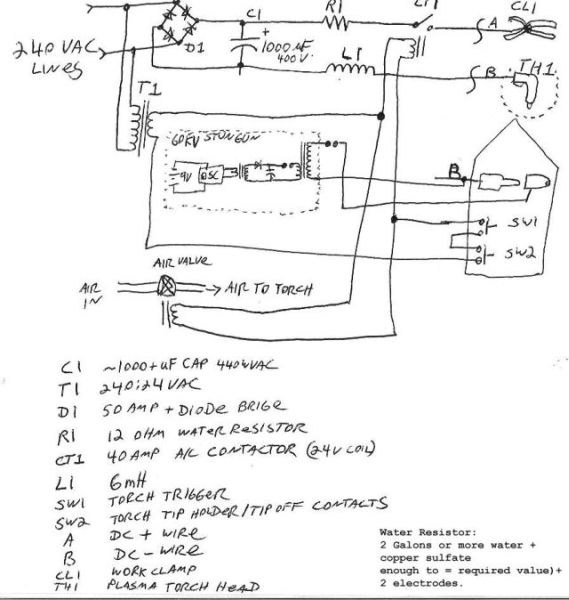 C1
R1
CT1
CL1
A
+
1000 uF
400 V.
D1
240 VAC
LINES
L1
B
TH1
T1
60KV STUNGUN
9V
OSC
B
SW1
SW2
AIR VALVE
AIR
IN
AIR TO TORCH
C1 ~1000+uF CAP 440WVAC
T1 240:24VAC
D1 50 AMP + DIODE BRIGE
R1 12 OHM WATER RESISTOR
CT1 40 AMP A/C CONTACTOR (24V COIL)
L1 6mH
SW1 TORCH TRIGGER
SW2 TORCH TIP HOLDER/TIP OFF CONTACTS
A DC + WIRE
B DC - WIRE
CL1 WORK CLAMP
TH1 PLASMA TORCH HEAD
Water Resistor:
2 Galons or more water +
copper sulfate
enough to = required value)+
2 electrodes.